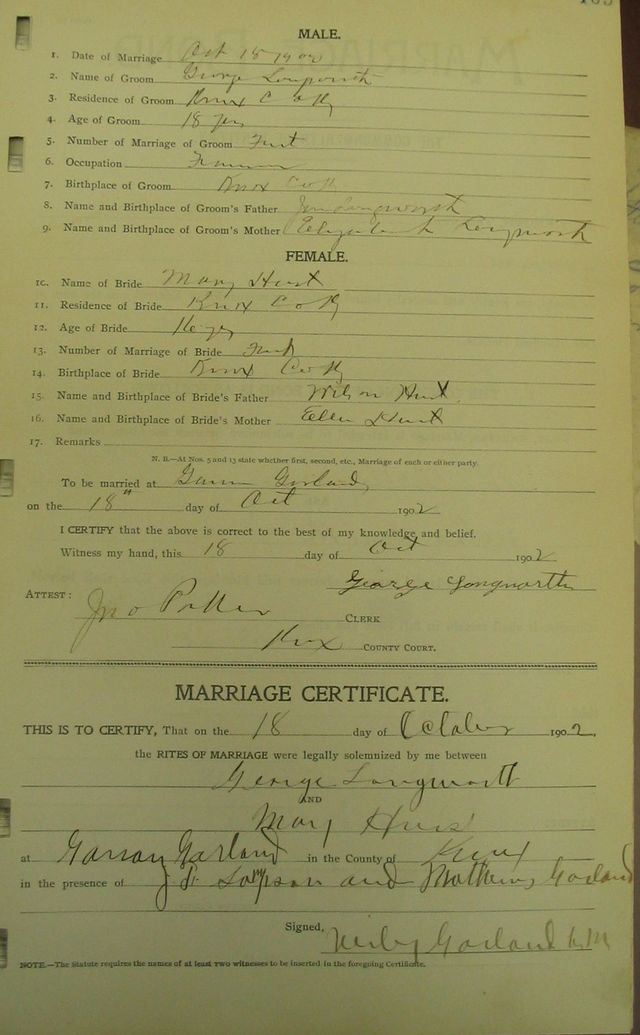 MALE.
1. Date of Marriage Oct 18 1902
2. Name of Groom George Longworth
3. Residence of Groom Knox Co Ky
4. Age of Groom 18 yrs
5. Number of Marriage of Groom First
6. Occupation Farmer
7. Birthplace of Groom Knox Co Ky
8. Name and Birthplace of Groom's Father Jim Longworth
9. Name and Birthplace of Groom's Mother Elizabeth Longworth
FEMALE.
10. Name of Bride Mary Hurst
11. Residence of Bride Knox Co Ky
12. Age of Bride 16 yrs
13. Number of Marriage of Bride First
14. Birthplace of Bride Knox Co Ky
15. Name and Birthplace of Bride's Father Wilson Hurst
16. Name and Birthplace of Bride's Mother Ellen Hurst
17. Remarks
N. B.—At Nos. 5 and 13 state whether first, second, etc., Marriage of each or either party.
To be married at Garland
on the 18" day of Oct 1902
I CERTIFY that the above is correct to the best of my knowledge and belief.
Witness my hand, this 18 day of Oct 1902
George Longworth
ATTEST: Jno Potter CLERK
Knox COUNTY COURT.
MARRIAGE CERTIFICATE.
THIS IS TO CERTIFY, That on the 18 day of October 1902,
the RITES OF MARRIAGE were legally solemnized by me between
George Longworth
AND
Mary Hurst
at Garland in the County of Knox
in the presence of and Mathews Garland
Signed, Garland
NOTE.—The Statute requires the names of at least two witnesses to be inserted in the foregoing Certificate.